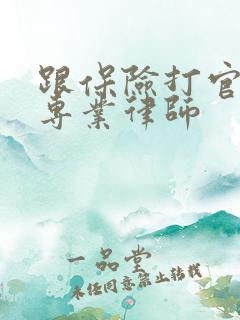 跟保險打官
專業律師
一品堂
未經同意禁止轉載